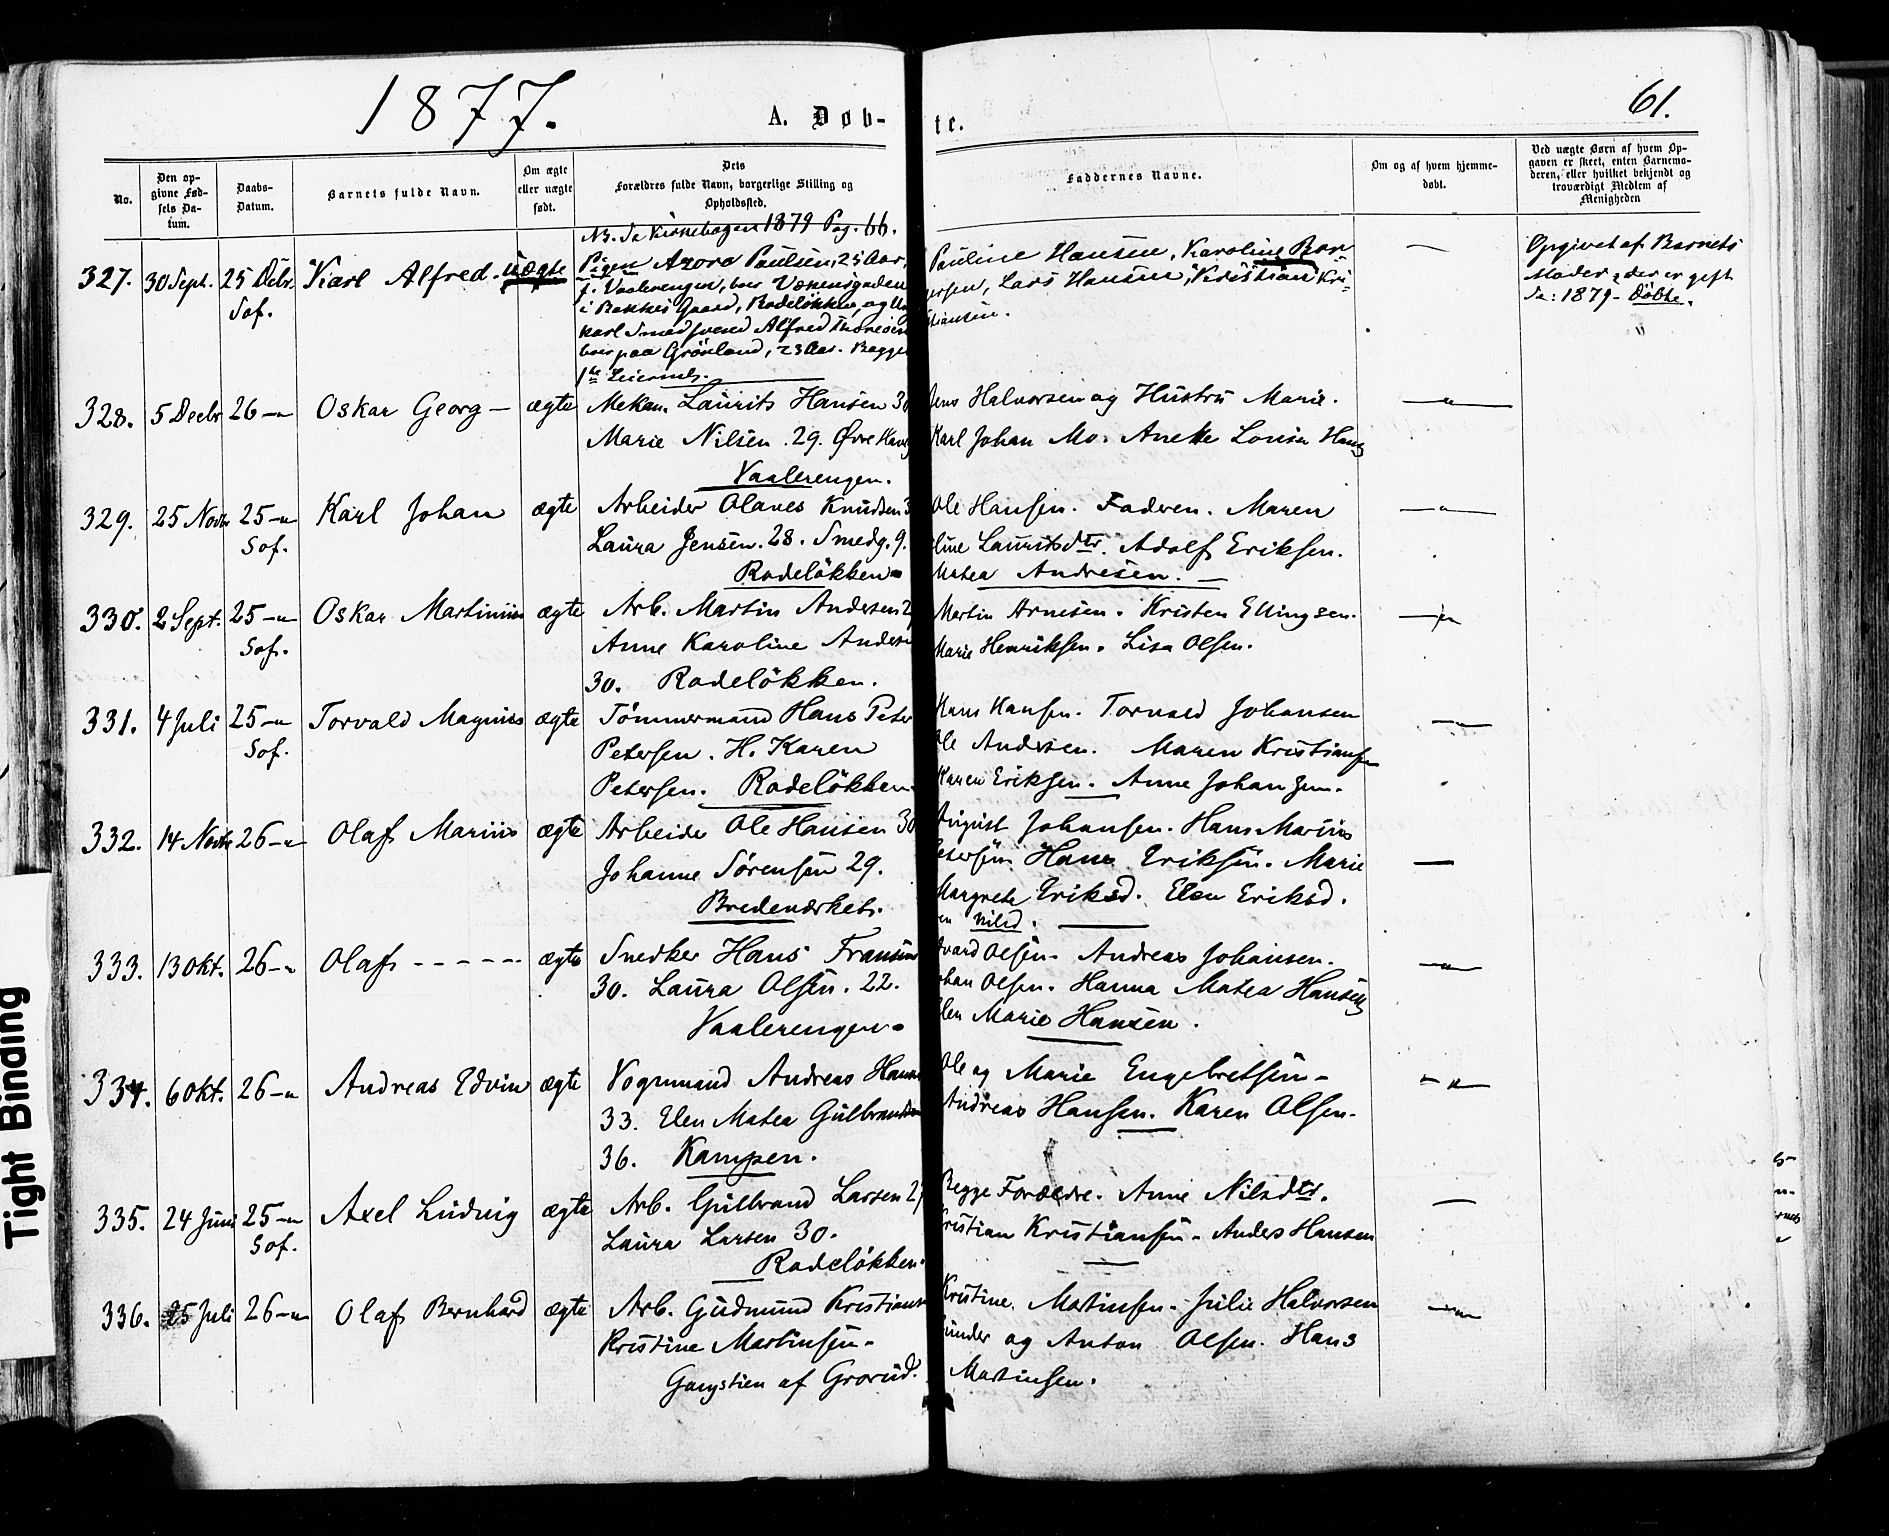 1877.
A. Døb-
te.
61.
No.
Den op-
givne Fød-
sels Da-
tum.
Daabs-
Datum.
Barnets fulde Navn.
Om ægte
eller uægte
født.
Dets
Forældres fulde Navn, borgerlige Stilling og
Opholdssted.
Faddernes Navne.
Om og af hvem hjemme-
døbt.
Ved uægte Børn af hvem Op-
gaven er skeet, enten Barnemo-
deren, eller hvilket bekjendt og
troværdigt Medlem af
Menigheden
NB. Se Kirkebogen 1879 Pag. 66.
327. 30 Sept. 25 Debr. Karl Alfred. uægte
Sof.
Pigen Azora Paulsen, 25 Aar,
f. Vaalerengen, boer
i Bakkes Gaard, Rodeløkken, og Ung
karl Smedsvend Alfred
boer paa Grönland, 23 Aar. Begge
1ste Leierm.
Pauline Hansen, Karoline Bor
gersen, Lars Hansen, Kristian Kri-
stiansen.
Opgivet af Barnets
Moder, der er gift
Se: 1879 - Døbte.
"
328. 5 Decbr 26-" Oskar Georg - ægte Mekan. Laurits Hansen 30 Jens Halvorsen og Hustru Marie. -"-
Marie Nilsen. 29. Øvre Karl Johan Mo. Aneke Lovise Haug
Vaalerengen.
329. 25 Novbr 25-" Karl Johan ægte Arbeider Olaves Knudsen 3 Ole Hansen. Faderen. Maren -"-
Sof. Laura Jensen. 28. Smedg. 9. line Lauritsdtr. Adolf Eriksen.
Rodeløkken Matea Andresen.
330. 2 Sept. 25-" Oskar Martinius ægte Arb. Martin Andersen 2 Martin Arnesen. Kristen Ellingsen. -"-
Sof. Anne Karoline Anders Marie Henriksen. Lisa Olsen.
30. Rodeløkken.
331. 4 Juli 25-" Torvald Magnus ægte Tömmermand Hans Peter Hans Hansen. Torvald Johansen -"-
Sof. Petersen. H. Karen Ole Andersen. Maren Kristiansen
Petersen. Rodeløkken. Karen Eriksen. Anne Johan
332. 14 Novbr 26-" Olaf Marius ægte Arbeider Ole Hansen 30 August Johansen. Hans Marius
Johanne Sørensen 29. Petersen Hans Eriksen. Marie -
Bredeverket. Margrete Eriksd. Elen Eriksd.
en Nilsd.
333. 13 Okt. 26-" Olaf - - - - - - ægte Snedker Hans Fransen vard Olsen. Andreas Johansen. -"-
30. Laura Olsen. 22. ohan Olsen. Hanna Matea Hansen
Vaalerengen len Marie Hansen.
334. 6 Okt. 26-" Andreas Edvin ægte Vognmand Andreas Hans Ole og Marie Engebretsen - -"-
33. Elen Matea Gulbrands Andreas Hansen. Karen Olsen.
36. Kampen.
335. 24 Juni 25-" Axel Ludvig ægte Arb. Gulbrand Larsen 27 Begge Forældre. Anne Nilsdtr. -
Sof. Laura Larsen 30. Kristian Kristiansen. Anders Hansen
Rodeløkken.
336. 25 Juli 26-" Olaf Bernhard ægte Arb. Gudmund Kristians Kristine Martinsen. Julie Halvorsen -"-
Kristine Martinsen. og Anton Olsen. Hans
Gangstien af Grorud. Martinsen.
Tight Binding